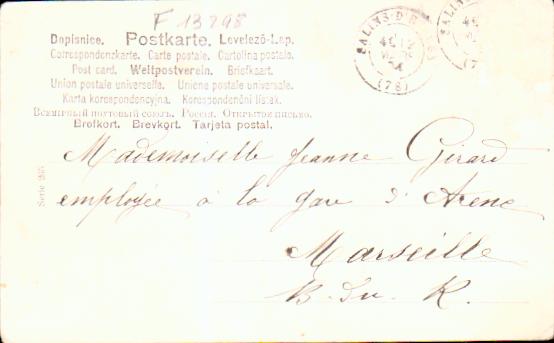 F 13298
Dopisnice. Postkarte. Levelező-Lap.
Correspondenzkarte. Carte postale. Cartolina postale.
Post card. Weltpostverein. Briefkaart.
Union postale universelle. Unione postale universale.
Karta korespondencyjna. Korespondenční lístek.
Всемирный почтовый союзъ. Россія. Открытое письмо.
Brefkort. Brevkort. Tarjeta postal.
SALINS-D'
(78)
SALINS
Serie
Mademoiselle Jeanne Girard
employée à la gare d'Arenc
Marseille
B. du R.